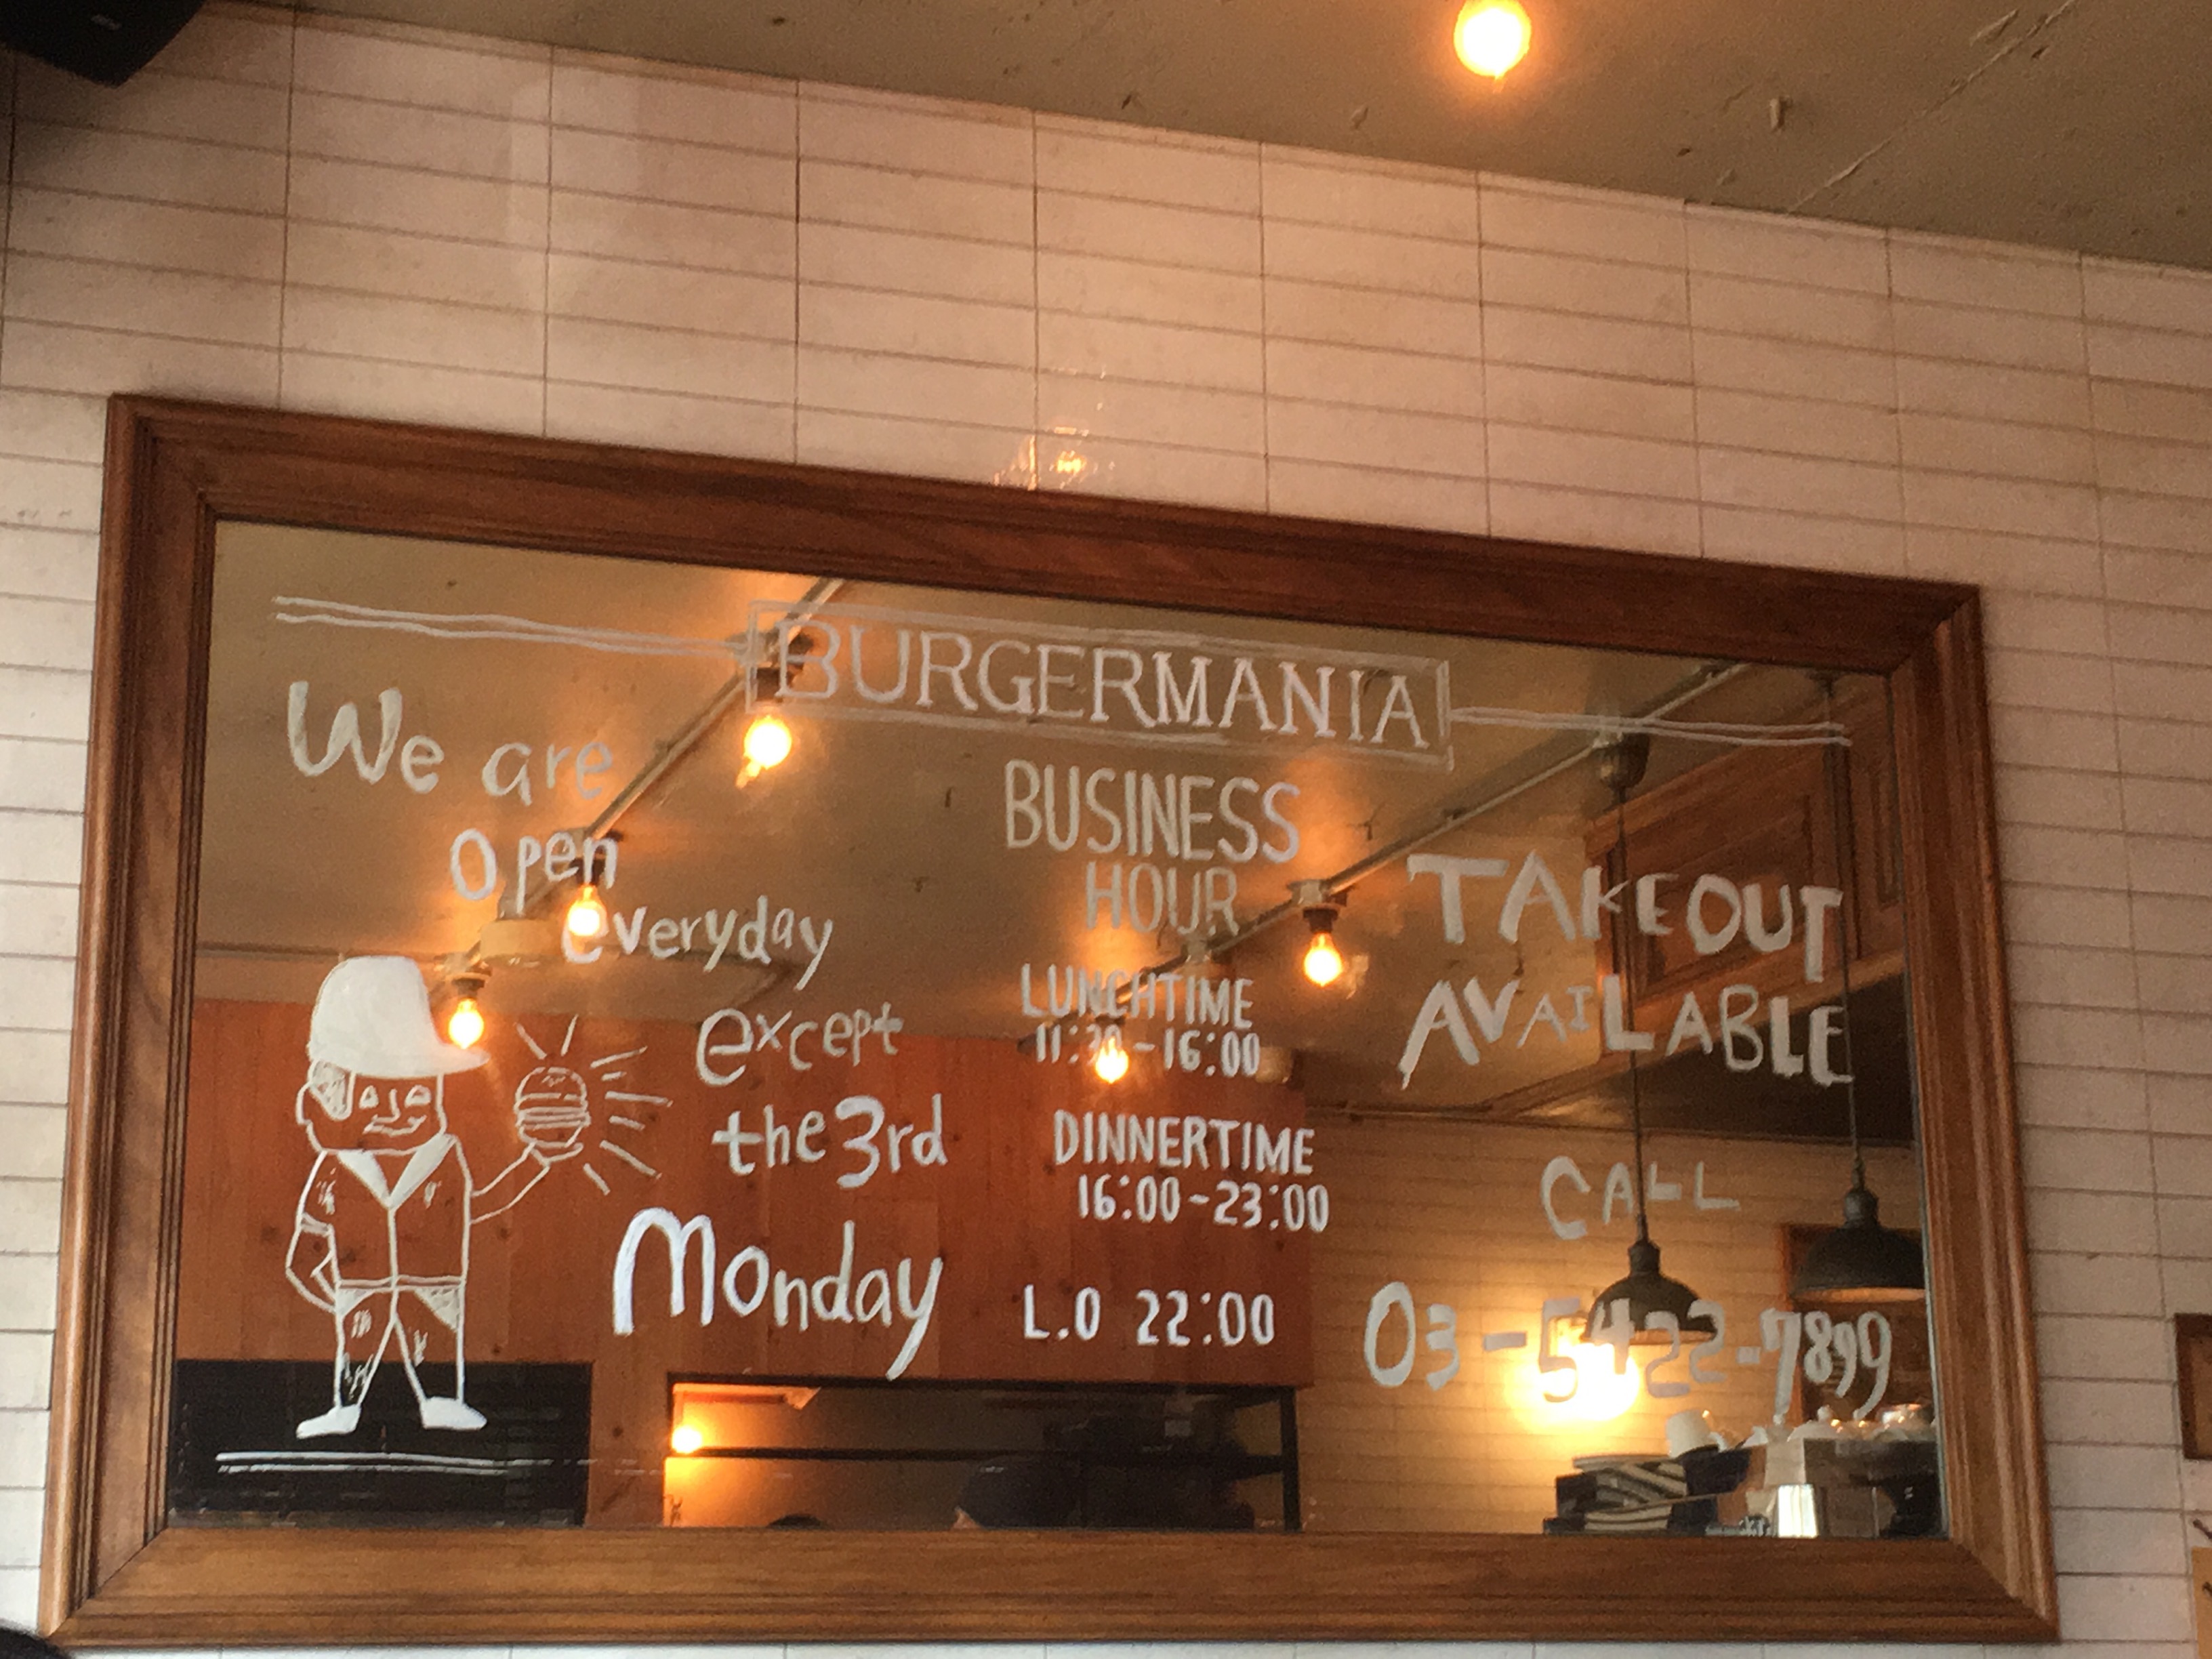 BURGERMANIA
We are
open
everyday
except
the 3rd
Monday
BUSINESS
HOUR
LUNCHTIME
11:30-16:00
DINNERTIME
16:00~23:00
L.O 22:00
TAKEOUT
AVAILABLE
CALL
03-5422-7899